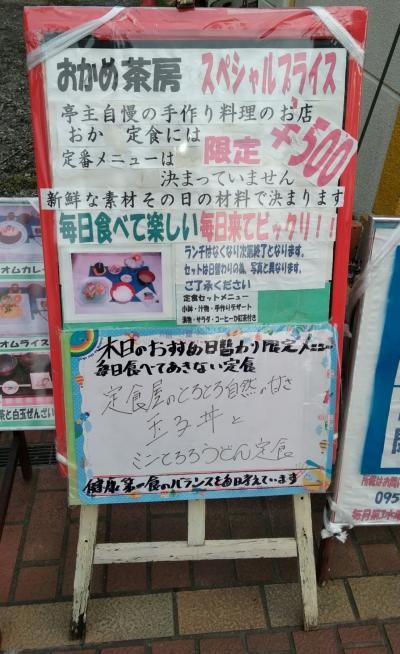 おかめ茶房 スペシャルプライス
亭主自慢の手作り料理のお店
おか 定食には
定番メニューは
限定 ¥500
決まっていません
新鮮な素材その日の材料で決まります
毎日食べて楽しい毎日来てビックリ!!
ランチはなくなり次第終了となります。
セットは日替わりの為、写真と異なります。
ご了承ください
定食セットメニュー
小鉢・汁物・手作りデザート
漬物・サラダ・コーヒーか紅茶付き
本日のおすすめ日替わり限定メニュー
毎日食べてあきない定食
定食屋のとろとろ自然の甘さ
玉子丼と
ミニとろろうどん定食
健康第一食のバランスを毎日考えています
オムカレ
オムライス
茶と白玉ぜんざい
095